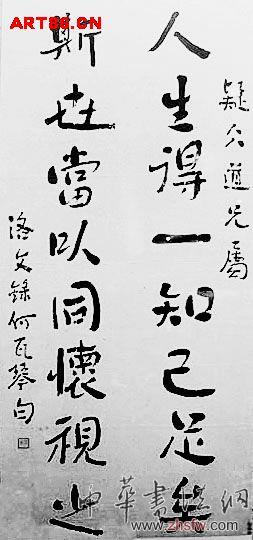 ART86.CN
疑仌道兄屬
人生得一知己足矣
斯世當以同懷視之
洛文錄何瓦琴句
www.zhsfw.com